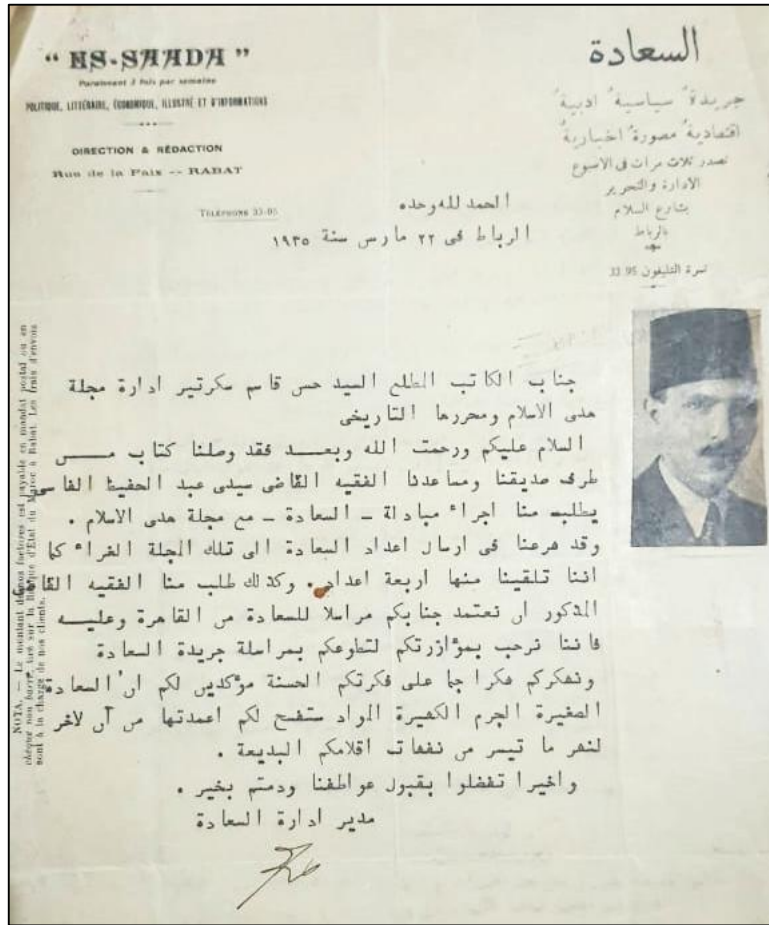 “ ES-SAADA ”
Paraissant 3 fois par semaine
POLITIQUE, LITTÉRAIRE, ÉCONOMIQUE, ILLUSTRÉ ET D'INFORMATIONS
DIRECTION & RÉDACTION
Rue de la Paix -- RABAT
TÉLÉPHONE 33-95
السعادة
جريدة سياسية ادبية
اقتصادية مصورة اخبارية
تصدر ثلاث مرات فى الاسبوع
الادارة والتحرير
بشارع السلام
بالرباط
نمرة التليفون 33.95
الحمد لله وحده
الرباط فى ٢٢ مارس سنة ١٩٣٥
جناب الكاتب المطلع السيد حسن قاسم سكرتير ادارة مجلة
هدى الاسلام ومحررها التاريخى
السلام عليكم ورحمت الله وبعد فقد وصلنا كتاب من
طرف صديقنا ومساعدنا الفقيه القاضى سيدى عبد الحفيظ الفاسى
يطلب منا اجراء مبادلة ـ السعادة ـ مع مجلة هدى الاسلام .
وقد شرعنا فى ارسال اعداد السعادة الى تلك المجلة الغراء كما
اننا تلقينا منها اربعة اعداد . وكذلك طلب منا الفقيه القاضى
المذكور ان نعتمد جنابكم مراسلا للسعادة من القاهرة وعليه
فاننا نرحب بمؤازرتكم لتطوعكم بمراسلة جريدة السعادة
ونشكركم شكرا جما على فكرتكم الحسنة مؤكدين لكم ان السعادة
الصغيرة الجرم الكبيرة المواد ستفسح لكم اعمدتها من آن لاخر
لنشر ما تيسر من نفثات اقلامكم البديعة .
واخيرا تفضلوا بقبول عواطفنا ودمتم بخير .
مدير ادارة السعادة
NOTA. — Le montant de nos factures est payable en mandat postal ou en
chèque non barré, tiré sur la Banque d'État du Maroc à Rabat. Les frais d'envois
sont à la charge de nos clients.